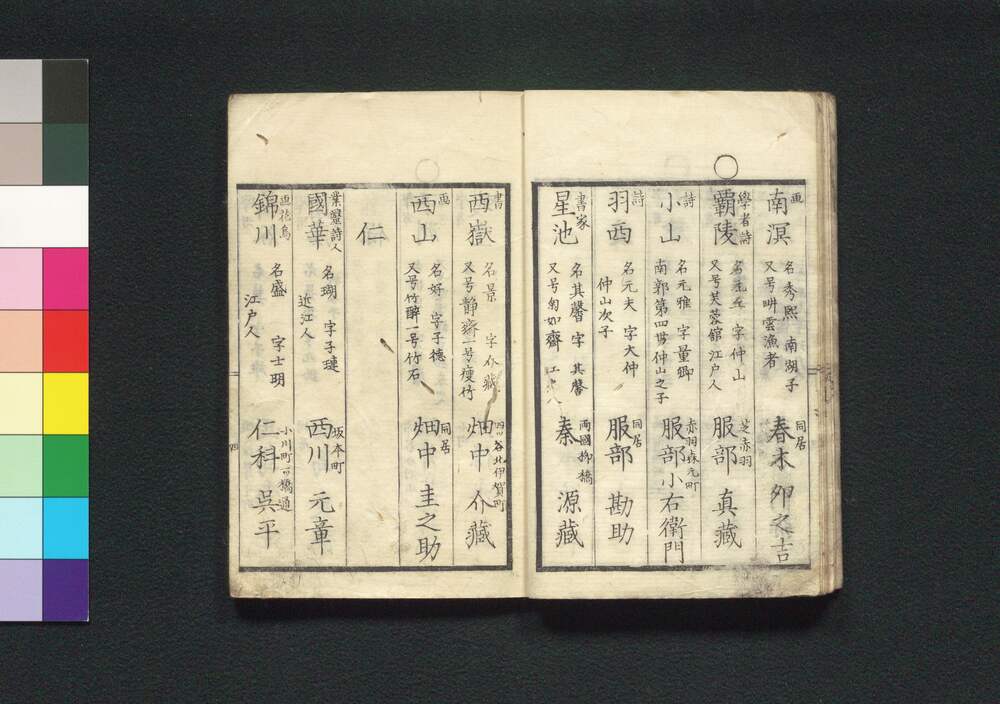 画
南溟
名秀熙 南湖子
又号畊雲漁者
同居
春木 卯之吉
学者詩
覇陵
字仲山
又号芙蓉館 江戸人
芝赤羽
服部 真藏
詩
小山
名元雅 字量卿
南郭第四世仲山之子
赤羽森元町
服部 小右衛門
詩
羽西
名元夫 字大仲
仲山次子
同居
服部 勘助
書家
星池
名其馨 字 其馨
又号匊如齋
両國柳橋
秦 源藏
書
西嶽
名景 字介藏
又号静齋一号痩竹
四谷北伊賀町
畑中 介藏
画
西山
名好 字子德
又号竹醉一号竹石
同居
畑中 圭之助
仁
業醫詩人
國華
名瑚 字子璉
近江人
坂本町
西川 元章
画花鳥
錦川
名盛 字士明
江戸人
小川町一橋通
仁科 呉平
四